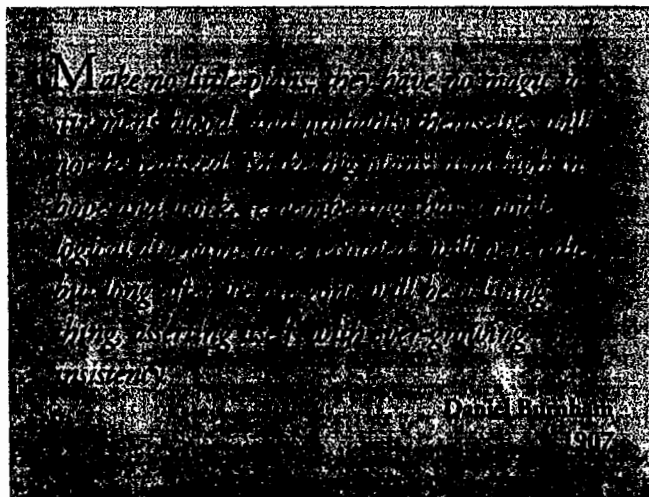 Make no little plans, they have no magic
blood and probably themselves will
not be big plans aim high in
hope and work, remembering that a noble
logical diagram once recorded will never die,
but long after we are gone will be a living
thing, asserting itself with ever-growing
insistency
Daniel Burnham